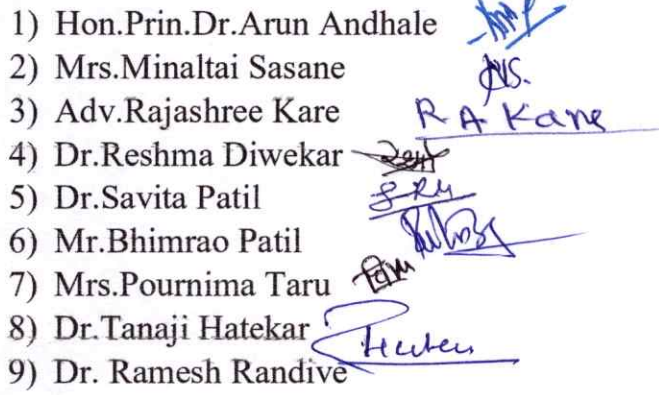 1) Hon.Prin.Dr.Arun Andhale
2) Mrs.Minaltai Sasane
3) Adv.Rajashree Kare R A Kare
4) Dr.Reshma Diwekar
5) Dr.Savita Patil
6) Mr.Bhimrao Patil
7) Mrs.Pournima Taru
8) Dr.Tanaji Hatekar
9) Dr. Ramesh Randive